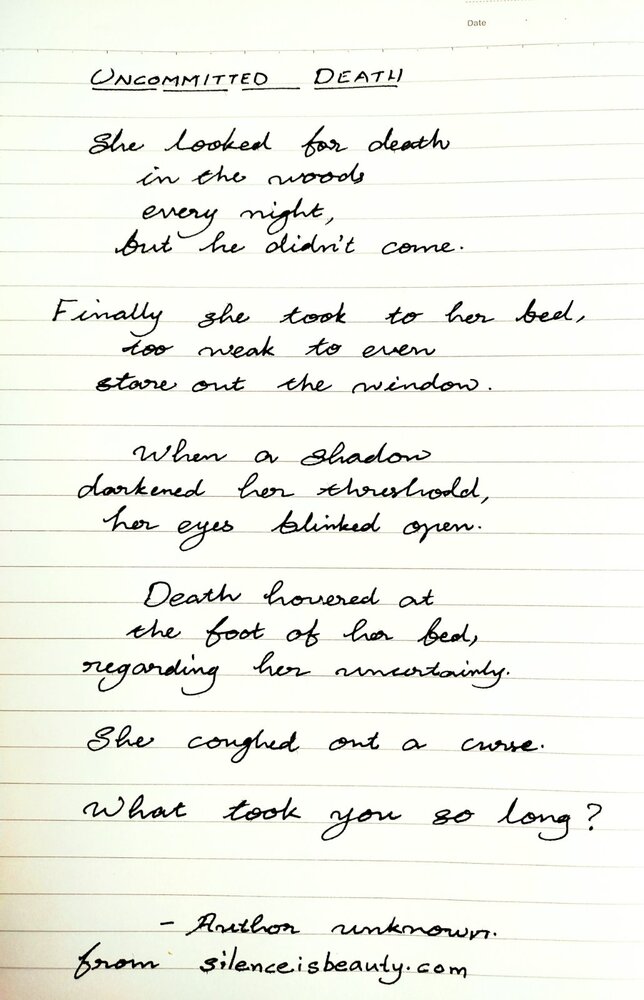 Date
UNCOMMITTED DEATH
She looked for death
in the woods
every night,
but he didn't come.
Finally she took to her bed,
too weak to even
stare out the window.
When a shadow
darkened her threshold,
her eyes blinked open.
Death hovered at
the foot of her bed,
regarding her uncertainly.
She coughed out a curse.
What took you so long?
- Author unknown.
from silenceisbeauty.com